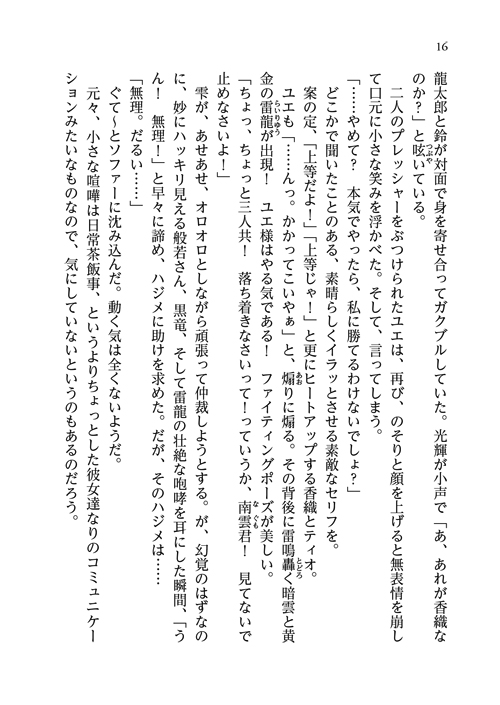 16
龍太郎と鈴が対面で身を寄せ合ってガクブルしていた。光輝が小声で「あ、あれが香織な
のか？」と呟いている。
二人のプレッシャーをぶつけられたユエは、再び、のそりと顔を上げると無表情を崩し
て口元に小さな笑みを浮かべた。そして、言ってしまう。
「……やめて？　本気でやったら、私に勝てるわけないでしょ？」
どこかで聞いたことのある、素晴らしくイラッとさせる素敵なセリフを。
案の定、「上等だよ！」「上等じゃ！」と更にヒートアップする香織とティオ。
ユエも「……んっ。かかってこいやぁ」と、煽りに煽る。その背後に雷鳴轟く暗雲と黄
金の雷龍が出現！　ユエ様はやる気である！　ファイティングポーズが美しい。
「ちょっ、ちょっと三人共！　落ち着きなさいって！っていうか、南雲君！　見てないで
止めなさいよ！」
雫が、あせあせ、オロオロとしながら頑張って仲裁しようとする。が、幻覚のはずなの
に、妙にハッキリ見える般若さん、黒竜、そして雷龍の壮絶な咆哮を耳にした瞬間、「う
ん！　無理！」と早々に諦め、ハジメに助けを求めた。だが、そのハジメは……
「無理。だるい……」
ぐて～とソファーに沈み込んだ。動く気は全くないようだ。
元々、小さな喧嘩は日常茶飯事、というよりちょっとした彼女達なりのコミュニケー
ションみたいなものなので、気にしていないというのもあるのだろう。